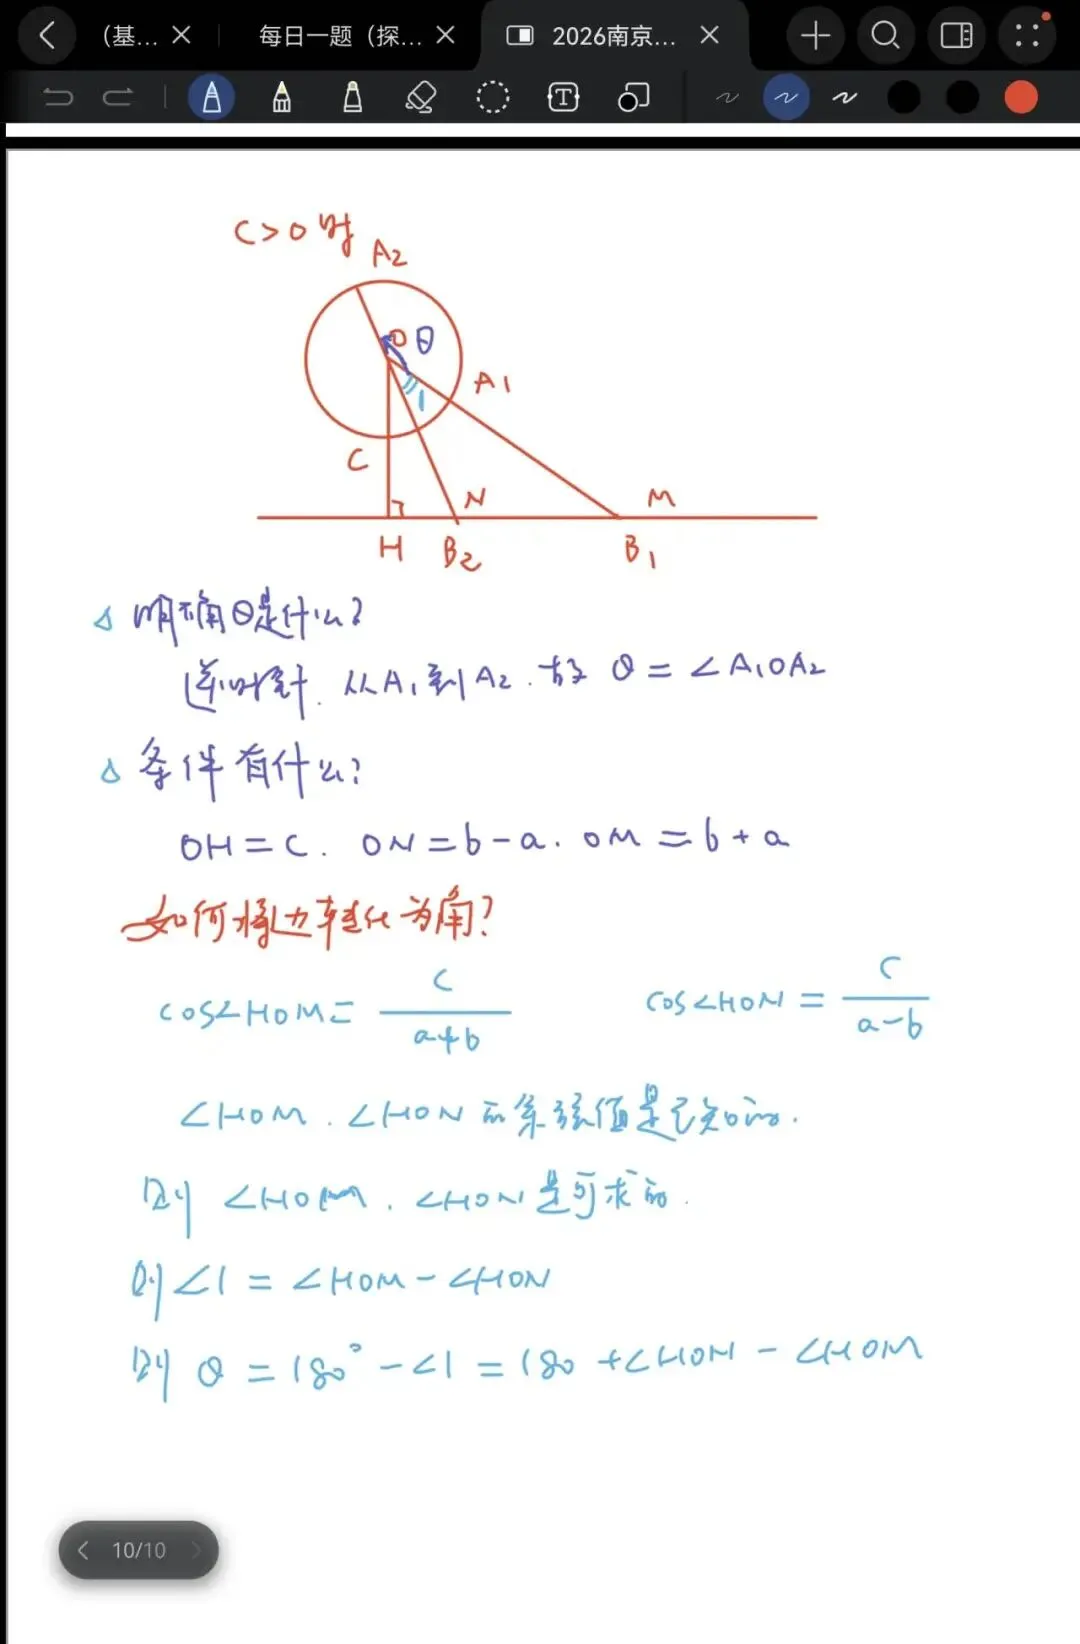 (基...
每日一题（探...
2026南京...
C>0时
A2
O θ
A1
1
C
N
M
H
B2
B1
△ 明确θ是什么?
逆时针.从A1到A2.故 θ=∠A1OA2
△ 条件有什么?
OH=C. ON=b-a. OM=b+a
如何将边转化为角?
cos∠HOM= C/a+b
cos∠HON= C/a-b
∠HOM.∠HON的余弦值是已知的.
则 ∠HOM.∠HON是可求的.
则∠1=∠HOM-∠HON
则 θ=180°-∠1=180+∠HON-∠HOM
10/10